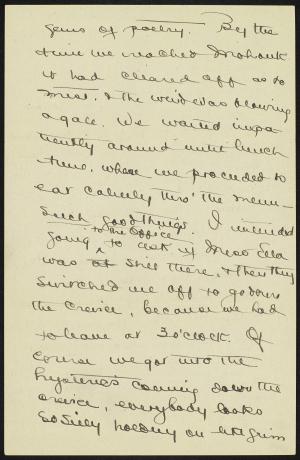 gems of poetry. By the
time we reached Mohonk
it had cleared off as to
mist, & the wind was blowing
a gale. We waited impa-
tiently around until lunch
time, where we proceeded to
eat calmly thro' the menu-
Such good things. I intended
going to the office to ask if Miss Ella
was at still there, & then they
switched me off to go down
the Crevice, because we had
to leave at 3 o'clock. Of
course we got into the
hysterics coming down the
crevice, everybody looks
so silly holding on like grim